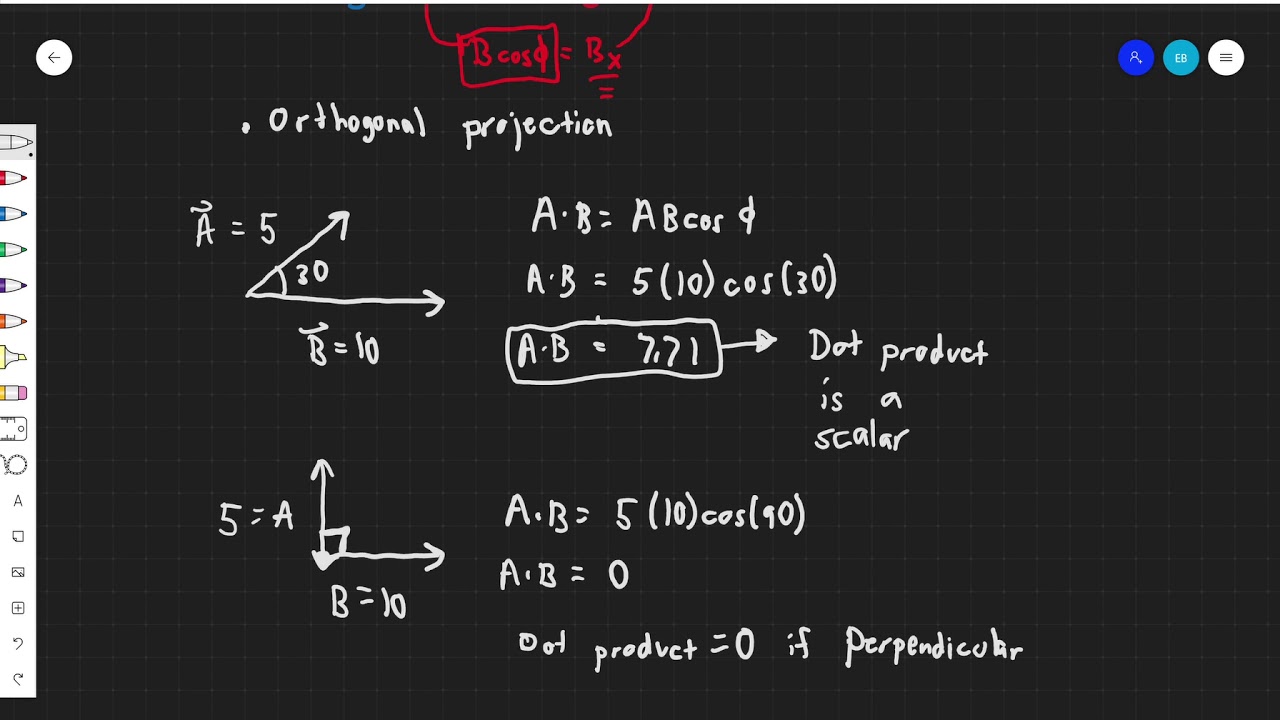 Bcosϕ = Bx
EB
• Orthogonal projection
A⃗ = 5
30
B⃗ = 10
A·B = ABcos ϕ
A·B = 5(10)cos(30)
A·B = 7.71
Dot product
is a
scalar
5 = A
B = 10
A·B = 5(10)cos(90)
A·B = 0
Dot product = 0 if Perpendicular
A